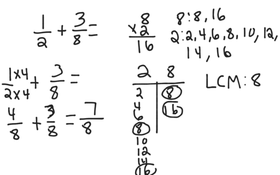 1/2 + 3/8 =
1×4/2×4 + 3/8 =
4/8 + 3/8 = 7/8
8
×2
16
8: 8, 16
2: 2, 4, 6, 8, 10, 12,
14, 16
LCM: 8
2 8
2 8
4 16
6
8
10
12
14
16